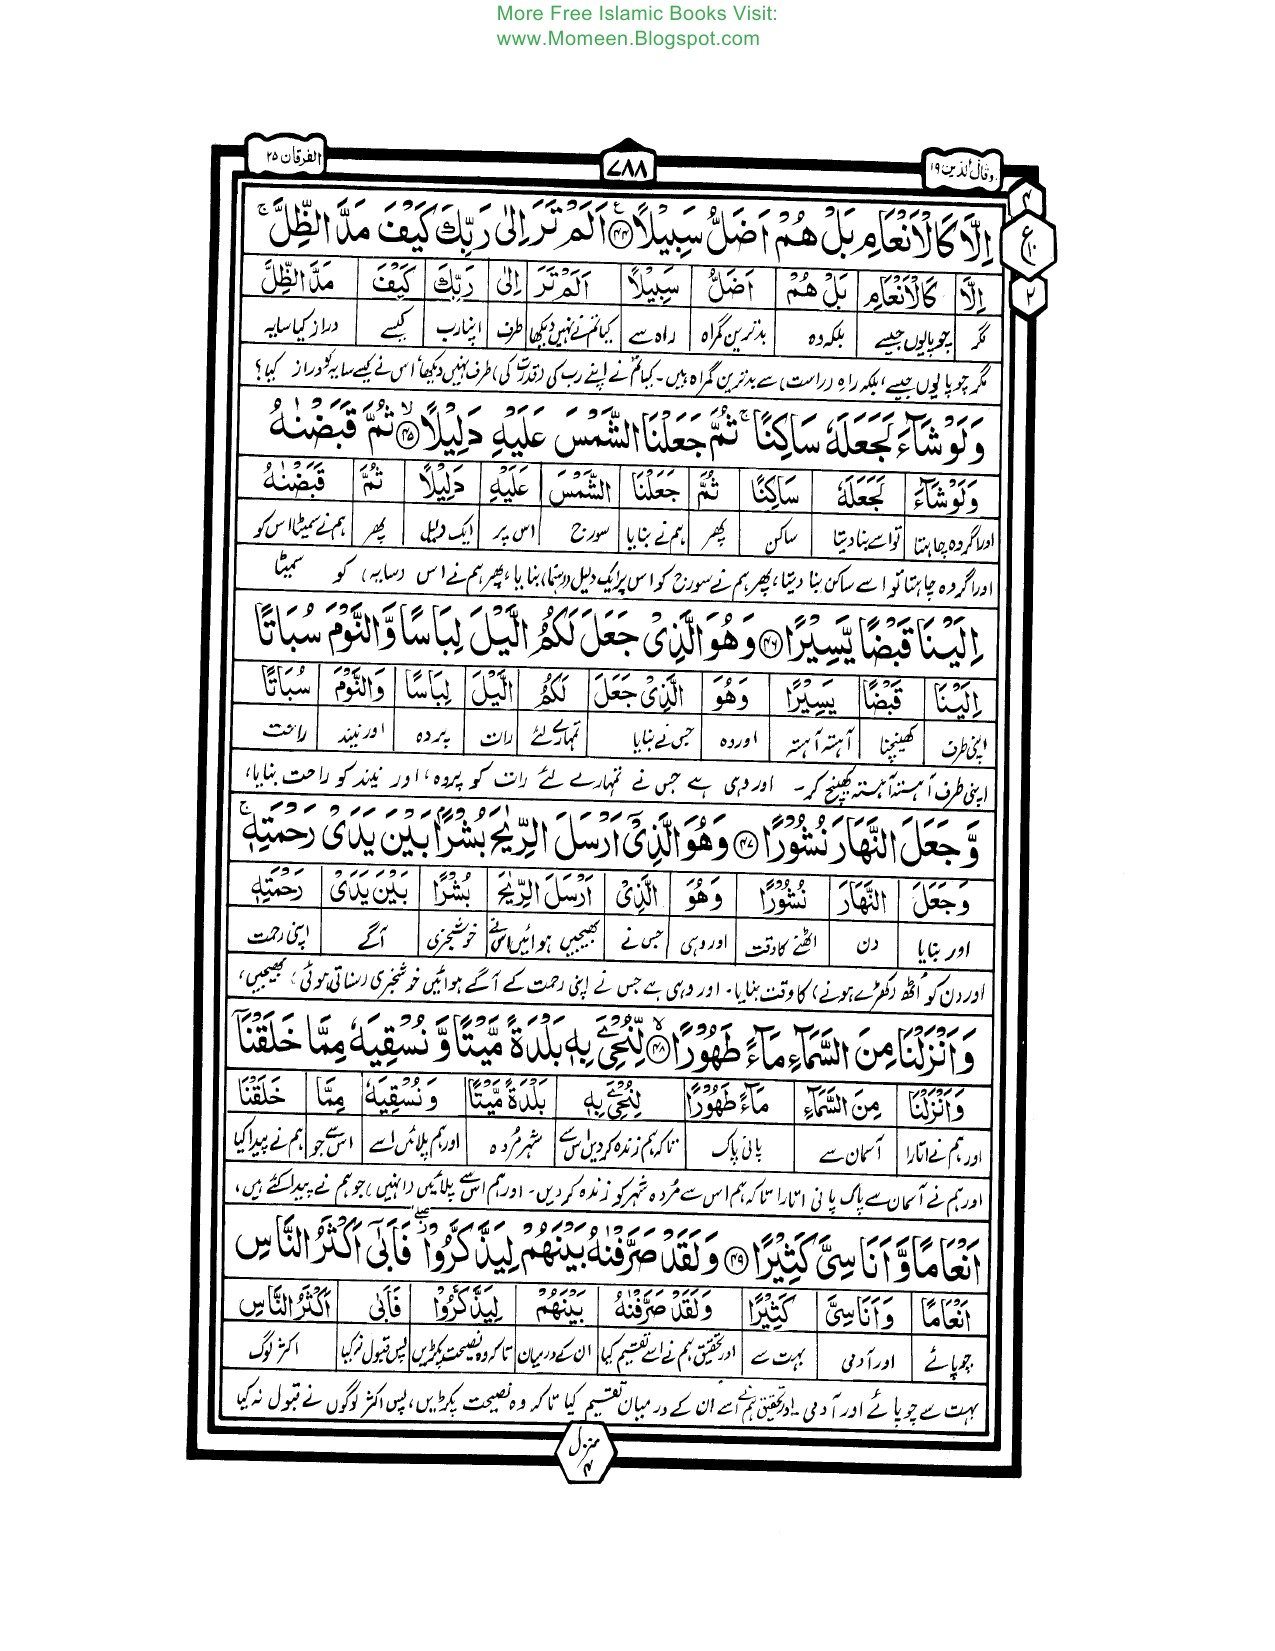 More Free Islamic Books Visit:
www.Momeen.Blogspot.com
وقال الذین ۱۹
۷۸۸
الفرقان ۲۵
اِلَّا كَالْاَنْعَامِ بَلْ هُمْ اَضَلُّ سَبِيْلًا ۴۴ اَلَمْ تَرَ اِلٰى رَبِّكَ كَيْفَ مَدَّ الظِّلَّ ج
۴
ع ۱۰
۲
اِلَّا كَالْاَنْعَامِ بَلْ هُمْ اَضَلُّ سَبِيْلًا اَلَمْ تَرَ اِلٰى رَبِّكَ كَيْفَ مَدَّ الظِّلَّ
مگر چوپایوں جیسے بلکہ وہ بدترین گمراہ راہ سے کیا تم نے نہیں دیکھا طرف اپنا رب کیسے دراز کیا سایہ
مگر چوپایوں جیسے، بلکہ راہِ (راست) سے بدترین گمراہ ہیں۔ کیا تم نے اپنے رب کی (قدرت کی) طرف نہیں دیکھا؟ اس نے کیسے سایہ کو دراز کیا؟
وَلَوْ شَآءَ لَجَعَلَهٗ سَاكِنًا ج ثُمَّ جَعَلْنَا الشَّمْسَ عَلَيْهِ دَلِيْلًا ۴۵ ثُمَّ قَبَضْنٰهُ
وَلَوْ شَآءَ لَجَعَلَهٗ سَاكِنًا ثُمَّ جَعَلْنَا الشَّمْسَ عَلَيْهِ دَلِيْلًا ثُمَّ قَبَضْنٰهُ
اور اگر وہ چاہتا تو اسے بنا دیتا ساکن پھر ہم نے بنایا سورج اس پر ایک دلیل پھر ہم نے سمیٹا اس کو
اور اگر وہ چاہتا تو اسے ساکن بنا دیتا، پھر ہم نے سورج کو اس پر ایک دلیل (رہنما) بنایا، پھر ہم نے اس (سایہ) کو سمیٹا
اِلَيْنَا قَبْضًا يَّسِيْرًا ۴۶ وَهُوَ الَّذِيْ جَعَلَ لَكُمُ الَّيْلَ لِبَاسًا وَّالنَّوْمَ سُبَاتًا
اِلَيْنَا قَبْضًا يَسِيْرًا وَهُوَ الَّذِيْ جَعَلَ لَكُمُ الَّيْلَ لِبَاسًا وَالنَّوْمَ سُبَاتًا
اپنی طرف کھینچنا آہستہ آہستہ اور وہ جس نے بنایا تمہارے لئے رات پردہ اور نیند راحت
اپنی طرف آہستہ آہستہ کھینچ کر۔ اور وہی ہے جس نے تمہارے لئے رات کو پردہ، اور نیند کو راحت بنایا،
وَّجَعَلَ النَّهَارَ نُشُوْرًا ۴۷ وَهُوَ الَّذِيْٓ اَرْسَلَ الرِّيٰحَ بُشْرًا بَيْنَ يَدَيْ رَحْمَتِهٖ ج
وَجَعَلَ النَّهَارَ نُشُوْرًا وَهُوَ الَّذِيْ اَرْسَلَ الرِّيٰحَ بُشْرًا بَيْنَ يَدَيْ رَحْمَتِهٖ
اور بنایا دن اٹھنے کا وقت اور وہی جس نے بھیجیں ہوائیں اس نے خوشخبری آگے اپنی رحمت
اور دن کو اُٹھ (کھڑے ہونے) کا وقت بنایا۔ اور وہی ہے جس نے اپنی رحمت کے آگے ہوائیں خوشخبری (سناتی ہوئی) بھیجیں،
وَاَنْزَلْنَا مِنَ السَّمَآءِ مَآءً طَهُوْرًا ۴۸ لِّنُحْيِۦَ بِهٖ بَلْدَةً مَّيْتًا وَّنُسْقِيَهٗ مِمَّا خَلَقْنَآ
وَاَنْزَلْنَا مِنَ السَّمَآءِ مَآءً طَهُوْرًا لِنُحْيِۦَ بِهٖ بَلْدَةً مَّيْتًا وَنُسْقِيَهٗ مِمَّا خَلَقْنَا
اور ہم نے اتارا آسمان سے پانی پاک تاکہ ہم زندہ کر دیں اس سے شہر مُردہ اور ہم پلائیں اسے اس سے جو ہم نے پیدا کیا
اور ہم نے آسمان سے پاک پانی اتارا تاکہ ہم اس سے مُردہ شہر کو زندہ کر دیں۔ اور ہم اس سے پلائیں (انہیں) جو ہم نے پیدا کئے ہیں،
اَنْعَامًا وَّاَنَاسِيَّ كَثِيْرًا ۴۹ وَلَقَدْ صَرَّفْنٰهُ بَيْنَهُمْ لِيَذَّكَّرُوْا فَاَبٰٓى اَكْثَرُ النَّاسِ
اَنْعَامًا وَاَنَاسِيَّ كَثِيْرًا وَلَقَدْ صَرَّفْنٰهُ بَيْنَهُمْ لِيَذَّكَّرُوْا فَاَبٰٓى اَكْثَرُ النَّاسِ
چوپائے اور آدمی بہت سے اور تحقیق ہم نے اسے تقسیم کیا ان کے درمیان تاکہ وہ نصیحت پکڑیں پس قبول نہ کیا اکثر لوگ
بہت سے چوپائے اور آدمی۔ اور تحقیق ہم نے اسے ان کے درمیان تقسیم کیا تاکہ وہ نصیحت پکڑیں، پس اکثر لوگوں نے قبول نہ کیا
منزل ۴